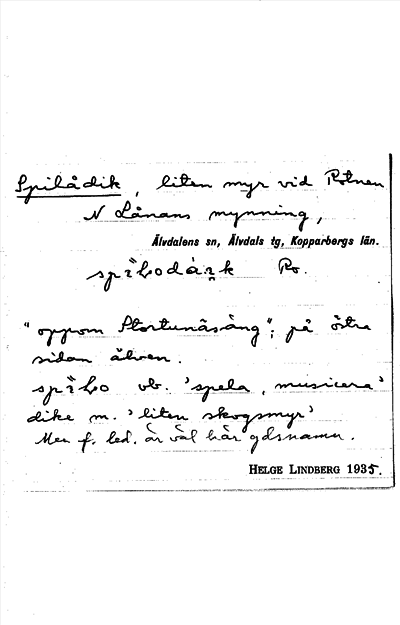 Spilådik, liten myr vid Rotnen
N Lånans mynning,
Älvdalens sn, Älvdals tg, Kopparbergs län.
Ro.
"oppom Stortunäsäng"; på östra
sidan älven.
vb. 'spela, musicera'
dike m. 'liten skogsmyr'
Men f. led. är väl här gdsnamn.
HELGE LINDBERG 1935.